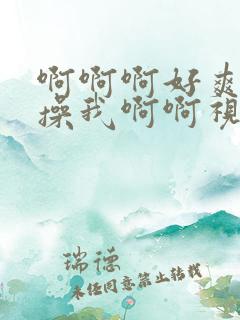 啊啊啊好爽
操我啊啊视
瑞德
未经同意禁止转载